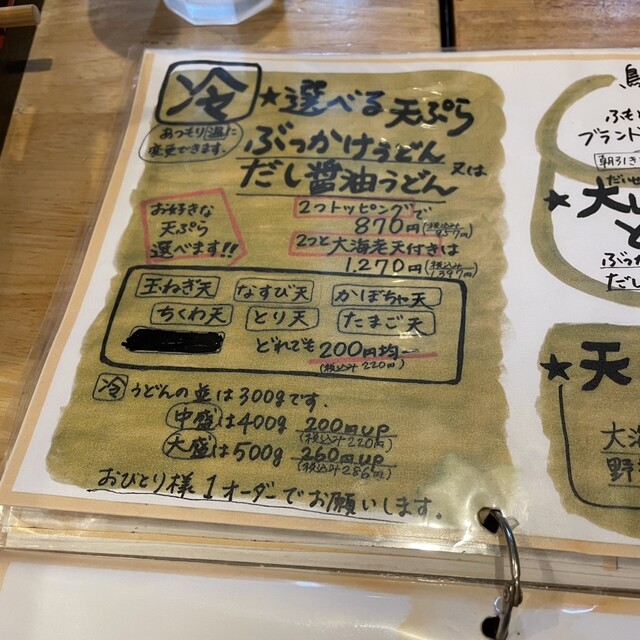 冷
★選べる天ぷら
あつもり(温)に
変更できます。
ぶっかけうどん
又は
だし醤油うどん
お好きな
天ぷら
選べます!!
2つトッピングで
870円(税込み957円)
2つと大海老天付きは
1,270円(税込み1,397円)
玉ねぎ天 なすび天 かぼちゃ天
ちくわ天 とり天 たまご天
どれでも200円均一
(税込み220円)
冷 うどんの並は300gです.
中盛は400g 200円UP
(税込み220円)
大盛は500g 260円UP
(税込み286円)
おひとり様1オーダーでお願いします.
ふもり
ブランド
朝引き
だいせ
★大山
と
ぶっか
だし
★天
大海
野